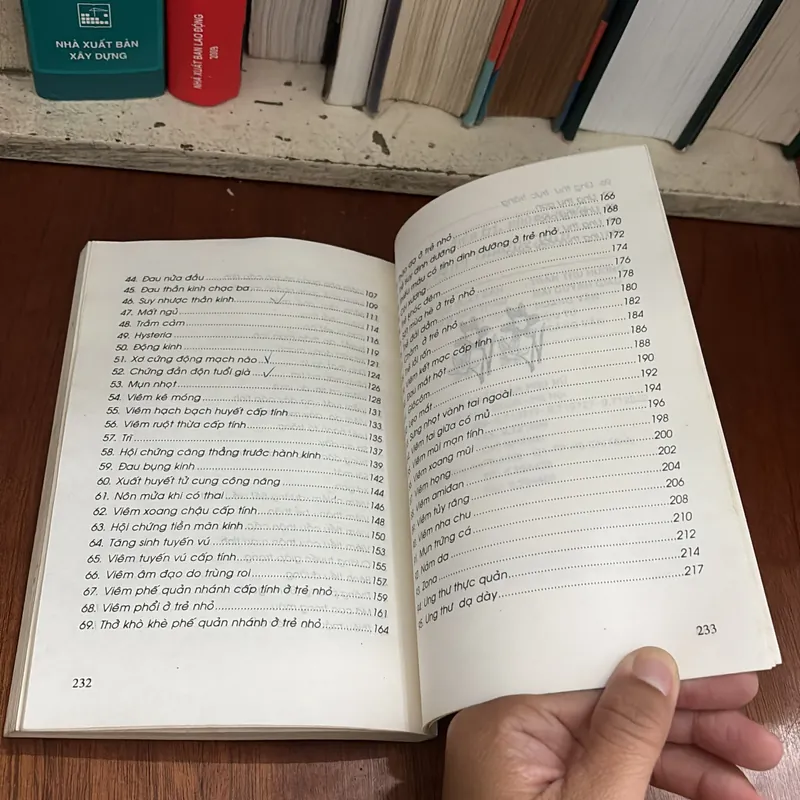 NHÀ XUẤT BẢN
XÂY DỰNG
NHÀ XUẤT BẢN LAO ĐỘNG
44. Đau nửa đầu 107
45. Đau thần kinh chạc ba 109
46. Suy nhược thần kinh 111
47. Mất ngủ 114
48. Trầm cảm 116
49. Hysteria 119
50. Động kinh 121
51. Xơ cứng động mạch não 124
52. Chứng đần độn tuổi già 126
53. Mụn nhọt 128
54. Viêm kẽ móng 131
55. Viêm hạch bạch huyết cấp tính 133
56. Viêm ruột thừa cấp tính 135
57. Trĩ 137
58. Hội chứng căng thẳng trước hành kinh 139
59. Đau bụng kinh 142
60. Xuất huyết tử cung công năng 144
61. Nôn mửa khi có thai 146
62. Viêm xoang chậu cấp tính 148
63. Hội chứng tiền mãn kinh 150
64. Tăng sinh tuyến vú 153
65. Viêm tuyến vú cấp tính 155
66. Viêm âm đạo do trùng roi 157
67. Viêm phế quản nhánh cấp tính ở trẻ nhỏ 159
68. Viêm phổi ở trẻ nhỏ 161
69. Thở khò khè phế quản nhánh ở trẻ nhỏ 164
232
ở trẻ nhỏ 166
dinh dưỡng 168
thiếu máu có tính dinh dưỡng ở trẻ nhỏ 170
172
khóc đêm 174
mùa hè ở trẻ nhỏ 176
đái dầm 178
ở trẻ nhỏ 180
rối loạn 182
Viêm kết mạc cấp tính 184
Đau mắt hột 186
Glôcôm 188
Lẹo mắt 190
Sưng nhọt vành tai ngoài 192
Viêm tai giữa có mủ 194
Viêm mũi mạn tính 196
Viêm xoang mũi 198
Viêm họng 200
Viêm amiđan 202
Viêm tủy răng 204
Viêm nha chu 206
Mụn trứng cá 208
Nám da 210
Zona 212
Ung thư thực quản 214
Ung thư dạ dày 217
233